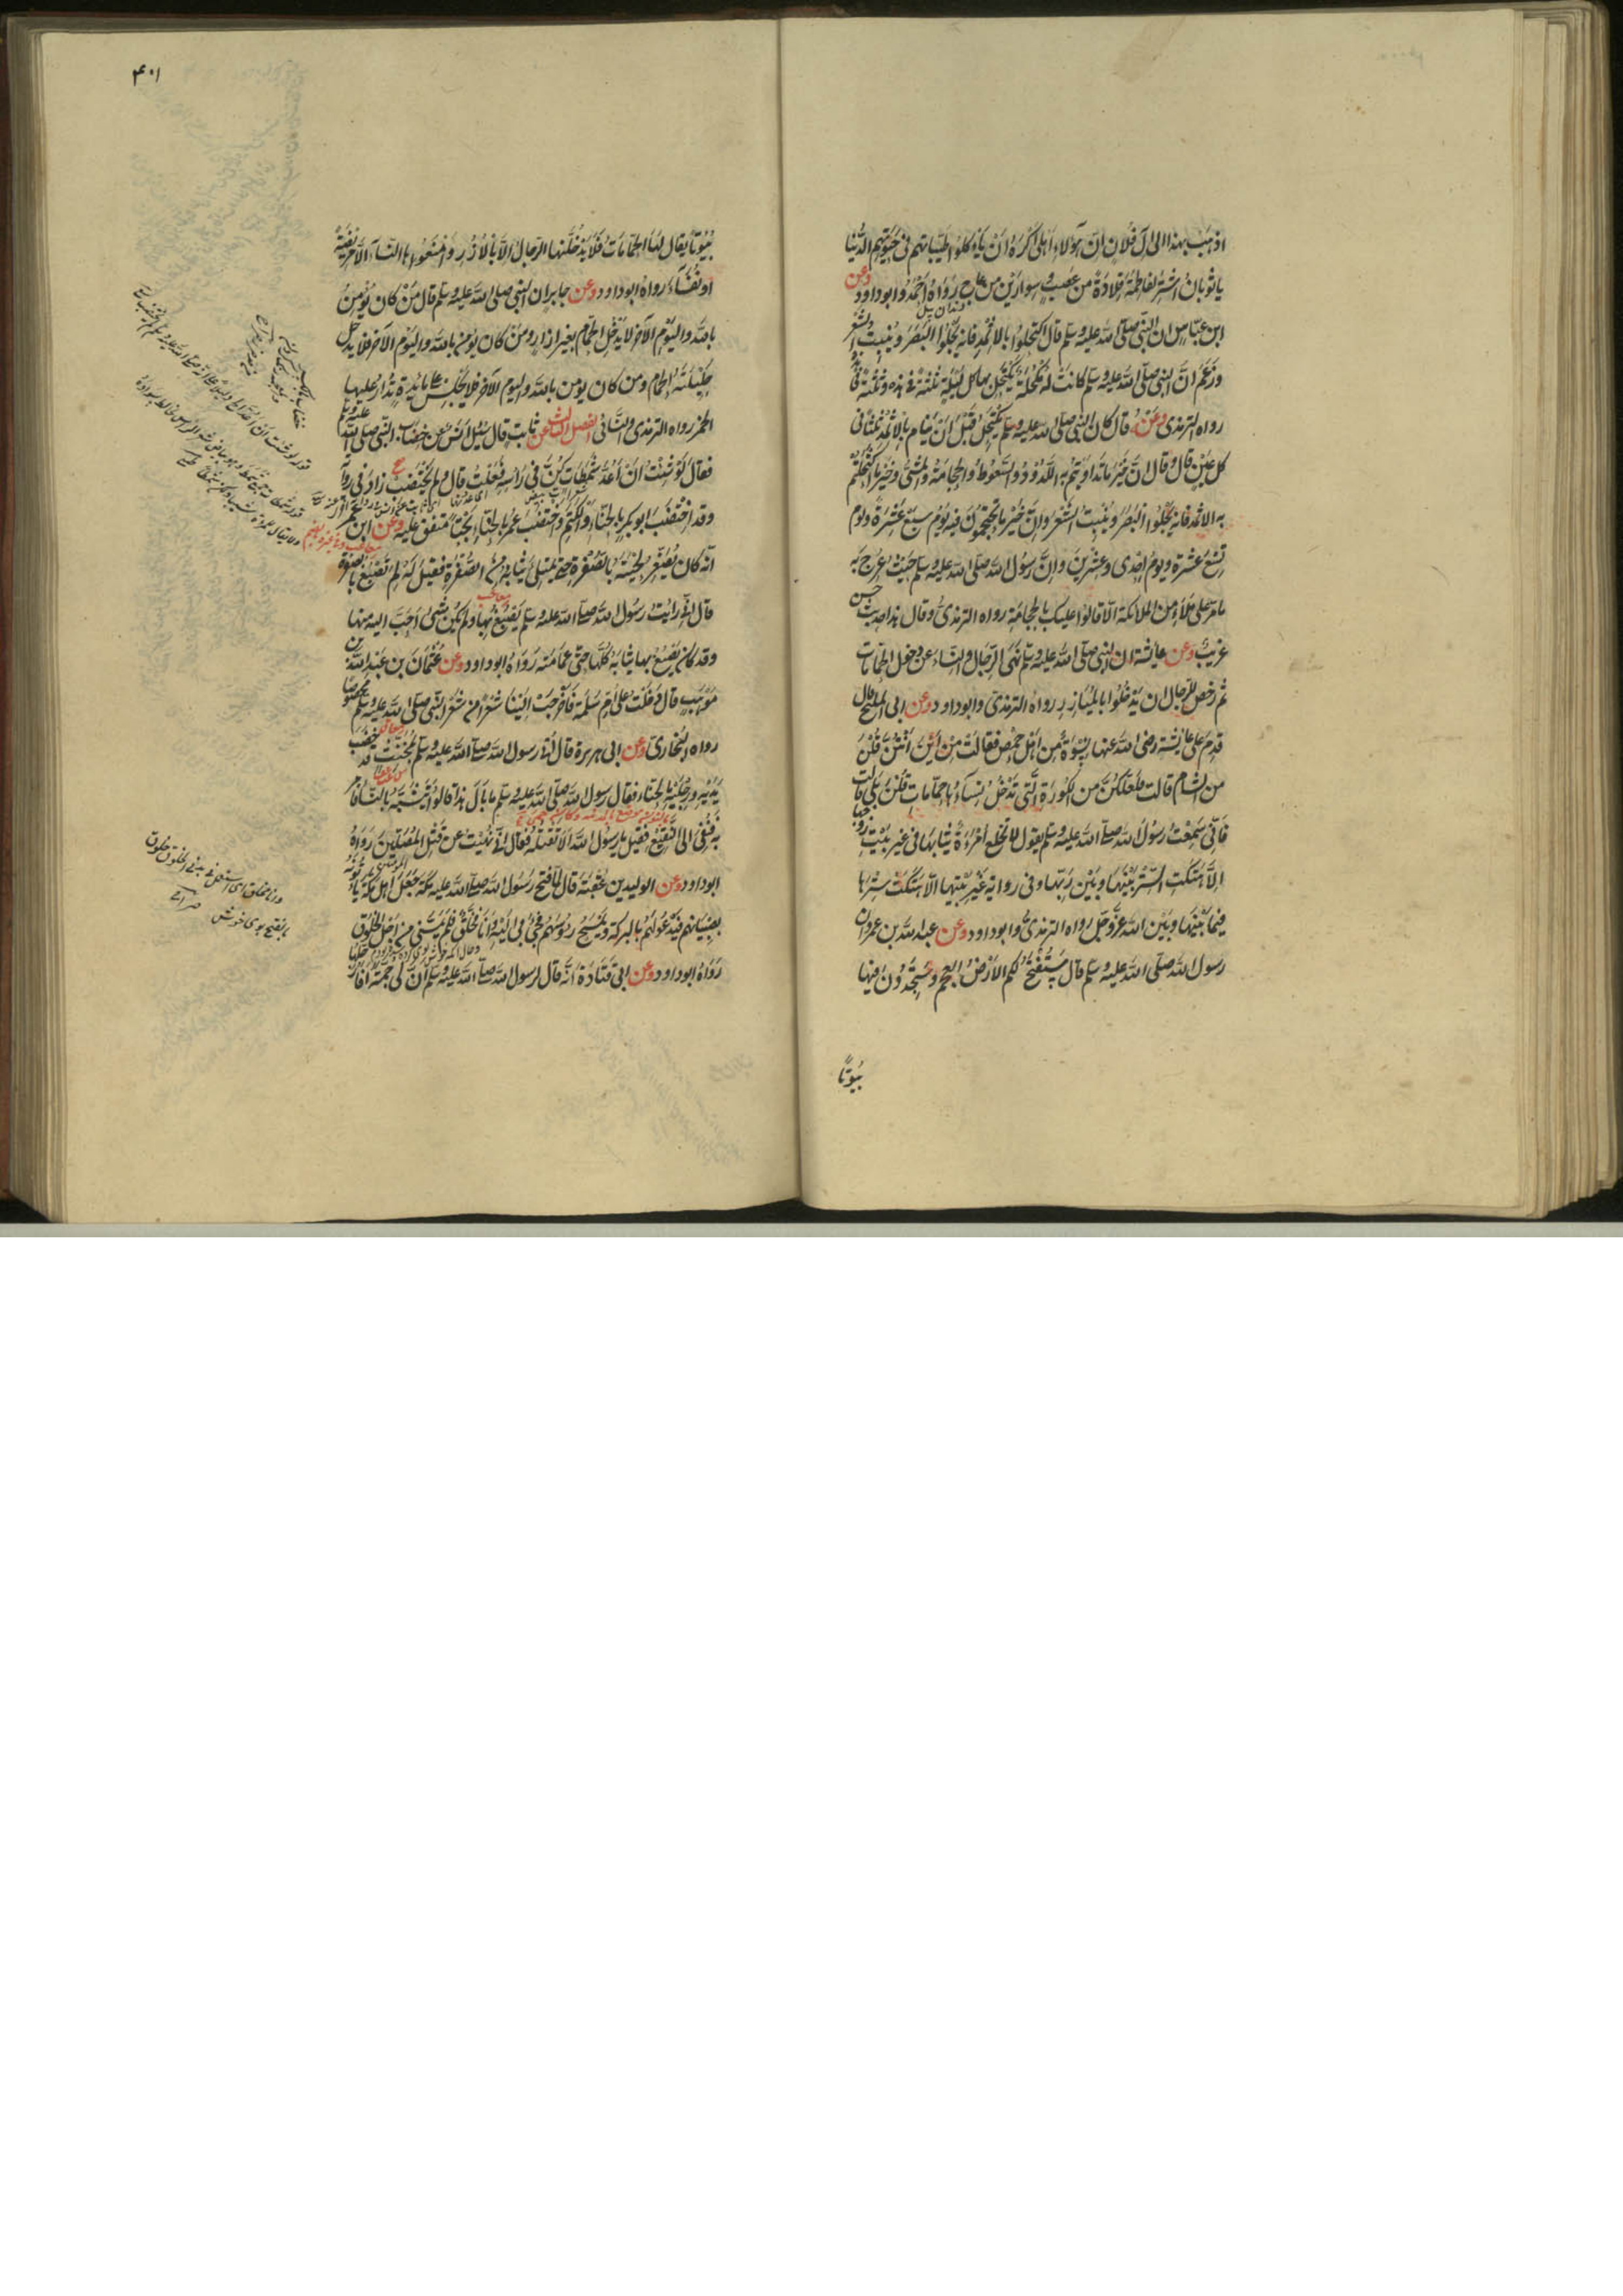 اذهب بهذا الى آل فلان ان هؤلاء اهلى اكره ان ياكلوا طيباتهم فى حيوتهم الدنيا
يا ثوبان اشتر لفاطمة قلادة من عصب وسوارين من عاج رواه احمد وابو داود وعن
ابن عباس ان النبى صلى الله عليه وسلم قال اكتحلوا بالاثمد فانه يجلوا البصر وينبت الشعر
وزعم ان النبى صلى الله عليه وسلم كانت له مكحلة يكتحل بها كل ليلة ثلثة فى هذه وثلثة فى
رواه الترمذى وعنه قال كان النبى صلى الله عليه وسلم يكتحل قبل ان ينام بالاثمد ثلثا فى
كل عين قال وقال ان خير ما تداويتم به اللدود والسعوط والحجامة والمشى وخير ما اكتحلتم
به الاثمد فانه يجلوا البصر وينبت الشعر وان خير ما تحتجمون فيه يوم سبع عشرة ويوم
تسع عشرة ويوم احدى وعشرين وان رسول الله صلى الله عليه وسلم حيث عرج به
ما مر على ملأ من الملائكة الا قالوا عليك بالحجامة رواه الترمذى وقال هذا حديث حسن
غريب وعن عايشة ان النبى صلى الله عليه وسلم نهى الرجال والنساء عن دخول الحمامات
ثم رخص للرجال ان يدخلوا بالميازر رواه الترمذى وابو داود وعن ابى المليح قال
قدم على عايشة رضى الله عنها نسوة من اهل حمص فقالت من اين انتن قلن
من الشام قالت فلعلكن من الكورة التى تدخل نساءها حمامات قلن بلى قالت
فانى سمعت رسول الله صلى الله عليه وسلم يقول لا تخلع امرءة ثيابها فى غير بيت زوجها
الا هتكت الستر بينها وبين ربها وفى رواية غير بيتها الا هتكت سترها
فيما بينها وبين الله عز وجل رواه الترمذى وابو داود وعن عبد الله بن عمرو ان
رسول الله صلى الله عليه وسلم قال ستفتح لكم الارض العجم وستجدون فيها
بيوتا
۴۰۱
بيوتا يقال لها الحمامات فلا يدخلنها الرجال الا بالازر وامنعوها النساء الا مريضة
او نفساء رواه ابو داود وعن جابر ان النبى صلى الله عليه وسلم قال من كان يؤمن
بالله واليوم الآخر لا يدخل الحمام بغير ازار ومن كان يؤمن بالله واليوم الآخر فلا يدخل
حليلته الحمام ومن كان يومن بالله واليوم الآخر فلا يجلس على مائدة تدار عليها
الخمر رواه الترمذى والنسائى الفصل الثالث عن ثابت قال سئل انس عن خضاب النبى صلى الله عليه وسلم
فقال لو شئت ان اعد شمطات كن فى رأسه فعلت قال ولم يختضب زاد فى رواية
وقد اختضب ابو بكر بالحناء والكتم واختضب عمر بالحناء بحتا متفق عليه وعن ابن عمر
انه كان يصفر لحيته بالصفرة حتى يمتلى ثيابه من الصفرة فقيل له لم تصبغ بالصفرة
قال انى رايت رسول الله صلى الله عليه وسلم يصبغ بها ولم يكن شىء احب اليه منها
وقد كان يصبغ بها ثيابه كلها حتى عمامته رواه ابو داود وعن عثمان بن عبد الله بن
موهب قال دخلت على ام سلمة فاخرجت الينا شعرا من شعر النبى صلى الله عليه وسلم مخضوبا
رواه البخارى وعن ابى هريرة قال اتى رسول الله صلى الله عليه وسلم بمخنث قد خضب
يديه ورجليه بالحناء فقال رسول الله صلى الله عليه وسلم ما بال هذا قالوا يتشبه بالنساء فامر
به فنفى الى النقيع فقيل يا رسول الله الا تقتله فقال انى نهيت عن قتل المصلين رواه
ابو داود وعن الوليد بن عقبة قال لما فتح رسول الله صلى الله عليه مكة جعل اهل مكة ياتونه
بصبيانهم فيدعو لهم بالبركة ويمسح رؤسهم فجئ بى اليه وانا مخلق فلم يمسنى من اجل الخلوق
رواه ابو داود وعن ابى قتادة انه قال لرسول الله صلى الله عليه وسلم ان لى جمة افارجلها